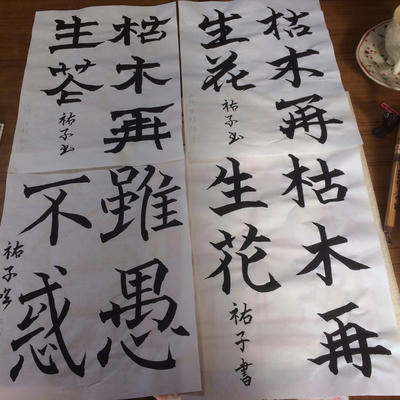 枯木再
生花
祐子書
枯木再
生花
祐子書
雖愚
不惑
祐子書
枯木再
生花
祐子書